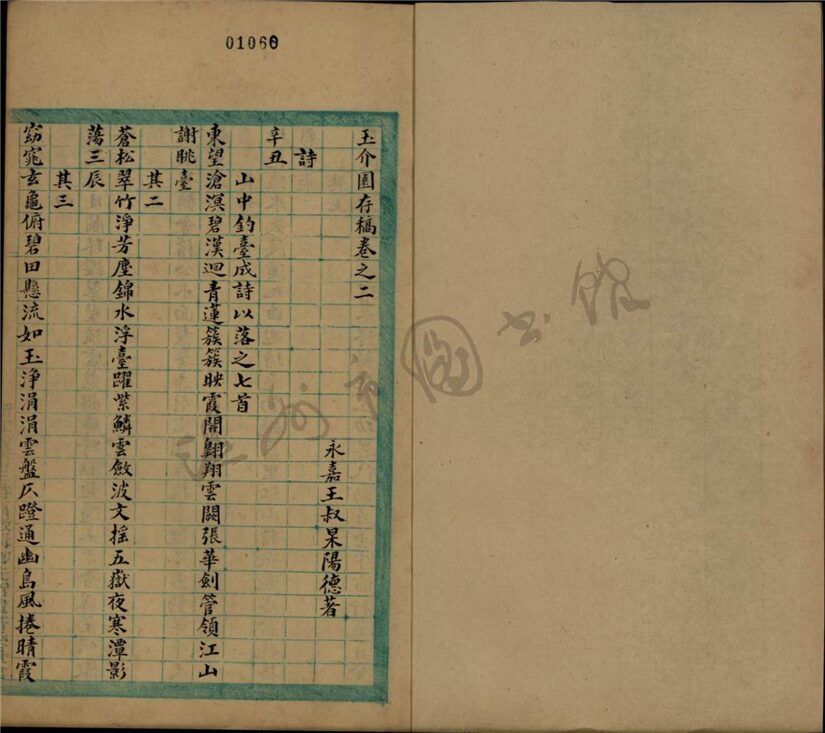 01060
玉介園存稿卷之二
永嘉王叔杲陽德著
詩
辛丑
山中釣臺成詩以落之七首
東望滄溟碧漢迴青蓮簇簇映霞開翱翔雲闕張華劍管領江山
謝眺臺
其二
蒼松翠竹淨芳塵錦水浮臺躍紫鱗雲斂波文搖五嶽夜寒潭影
蕩三辰
其三
窈窕玄龜俯碧田懸流如玉淨涓涓雲盤仄蹬通幽島風捲晴霞
溫州市圖書館